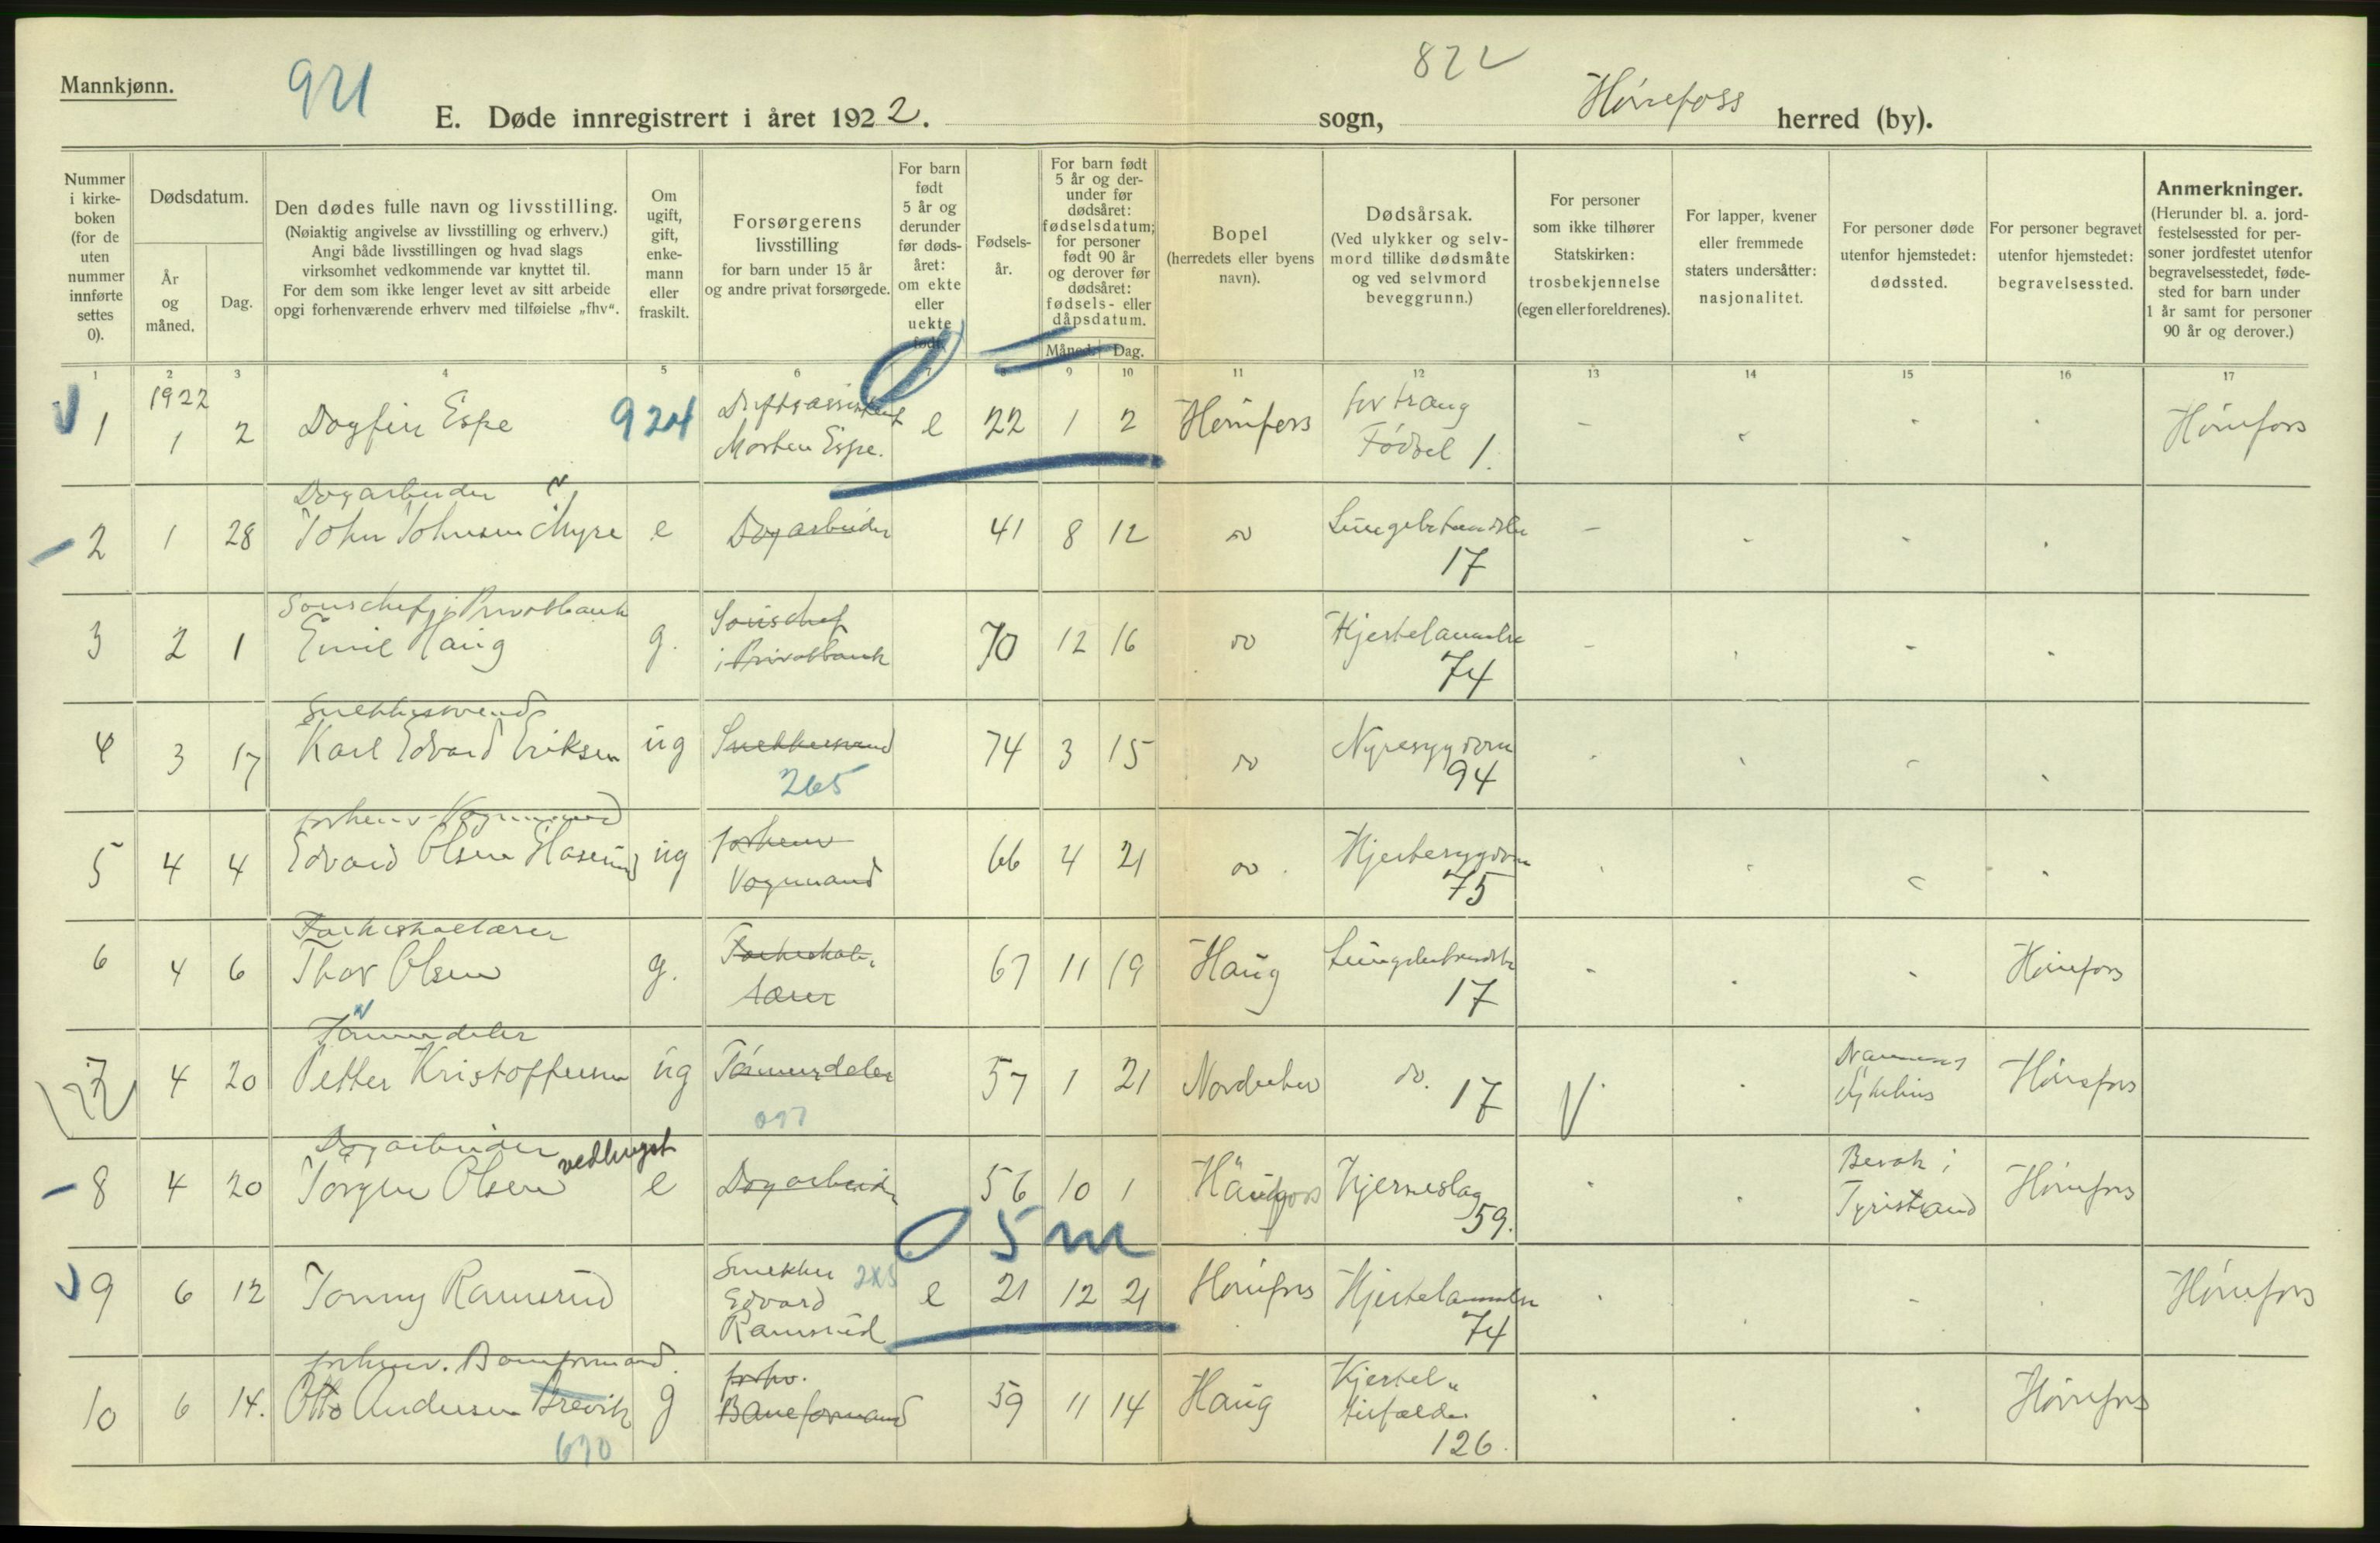 Mannkjønn.
921
822
E. Døde innregistrert i året 1922. sogn, Hønefoss herred (by).
Nummer i kirke- boken (for de uten nummer innførte settes 0).
Dødsdatum.
År og måned.
Dag.
Den dødes fulle navn og livsstilling.
(Nøiaktig angivelse av livsstilling og erhverv.)
Angi både livsstillingen og hvad slags
virksomhet vedkommende var knyttet til.
For dem som ikke lenger levet av sitt arbeide
opgi forhenværende erhverv med tilføielse „fhv“.
Om ugift, gift, enke- mann eller fraskilt.
Forsørgerens livsstilling
for barn under 15 år
og andre privat forsørgede.
For barn født 5 år og derunder før døds- året: om ekte eller uekte født.
Fødsels- år.
For barn født 5 år og der- under før dødsåret: fødselsdatum; for personer født 90 år og derover før dødsåret: fødsels- eller dåpsdatum.
Måned. Dag.
Bopel
(herredets eller byens navn).
Dødsårsak.
(Ved ulykker og selv- mord tillike dødsmåte og ved selvmord beveggrunn.)
For personer som ikke tilhører Statskirken: trosbekjennelse (egen eller foreldrenes).
For lapper, kvener eller fremmede staters undersåtter: nasjonalitet.
For personer døde utenfor hjemstedet: dødssted.
For personer begravet utenfor hjemstedet: begravelsessted.
Anmerkninger.
(Herunder bl. a. jord- festelsessted for per- soner jordfestet utenfor begravelsesstedet, føde- sted for barn under 1 år samt for personer 90 år og derover.)
1 2 3 4 5 6 7 8 9 10 11 12 13 14 15 16 17
1922
1 1 2 Dagfin Espe 924 Driftsassistent e 22 1 2 Hønefoss for trang - Hønefoss
Morten Espe. Fødsel 1.
Dagarbeider
2 1 28 John Johnsen Myre e Dagarbeider 41 8 12 do Lungebetændelse -
17
Souschef i Privatbank
3 2 1 Emil Haug g. Souschef 70 12 16 do Hjertelammelse
i Privatbank 74
Snekkersvend
4 3 17 Karl Edvard Eriksen ug Snekkersvend 74 3 15 do Nyresygdom
265 94
forhenv. Vognmand
5 4 4 Edvard Olsen ug forhenv 66 4 21 do Hjertesygdom
Vognmand 75
6 4 6 Thor Olsen g. 67 11 19 Haug Lungebetændelse Hønefoss
lærer 17
Tømmerdeler
7 4 20 Petter Kristoffersen ug Tømmerdeler 57 1 21 Norderhov do. 17 Hønefoss
Sykehus
097
Dagarbeider vedhugst
8 4 20 Jørgen Olsen e Dagarbeider 56 10 1 Hønefoss Hjerneslag Besøk i Hønefoss
59. Tyristrand
0 5 m
9 6 12 Jonny Ramsrud Snekker 265 e 21 12 21 Hønefoss Hjertelammelse Hønefoss
Edvard
Ramsrud 74
forhenv. Baneformand.
10 6 14. Otto Andersen Brevik g forhv. 59 11 14 Haug Kjertel- Hønefoss
Baneformand tilfælde
670 126.